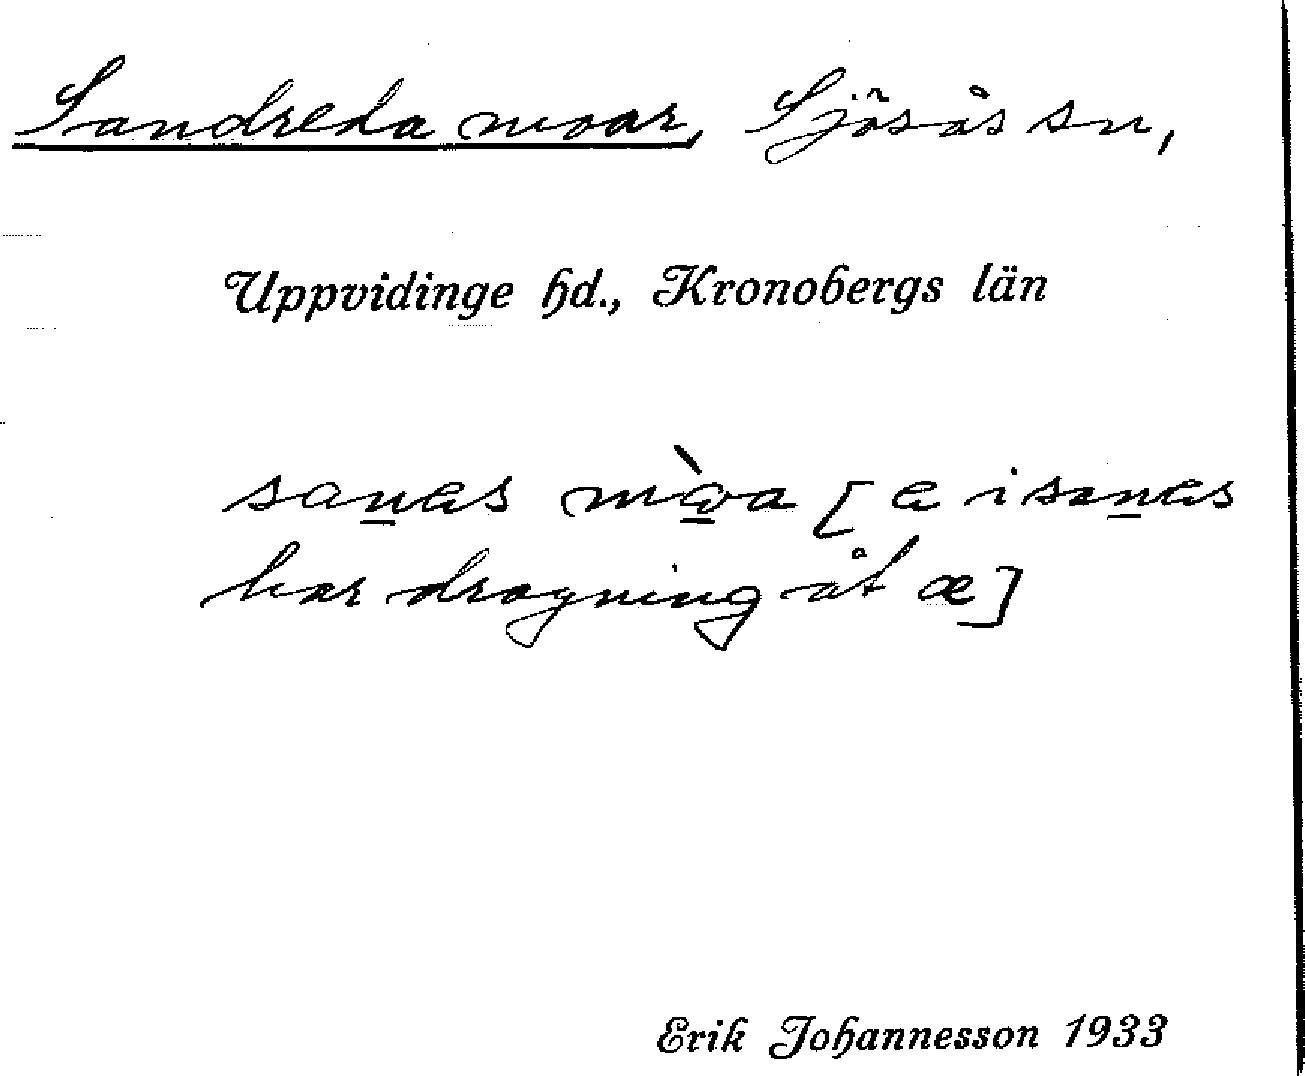 Sandreda moar, Sjösås sn,
Uppvidinge hd., Kronobergs län
san̲as mò̲a [a i san̲as
har dragning åt æ]
Erik Johannesson 1933